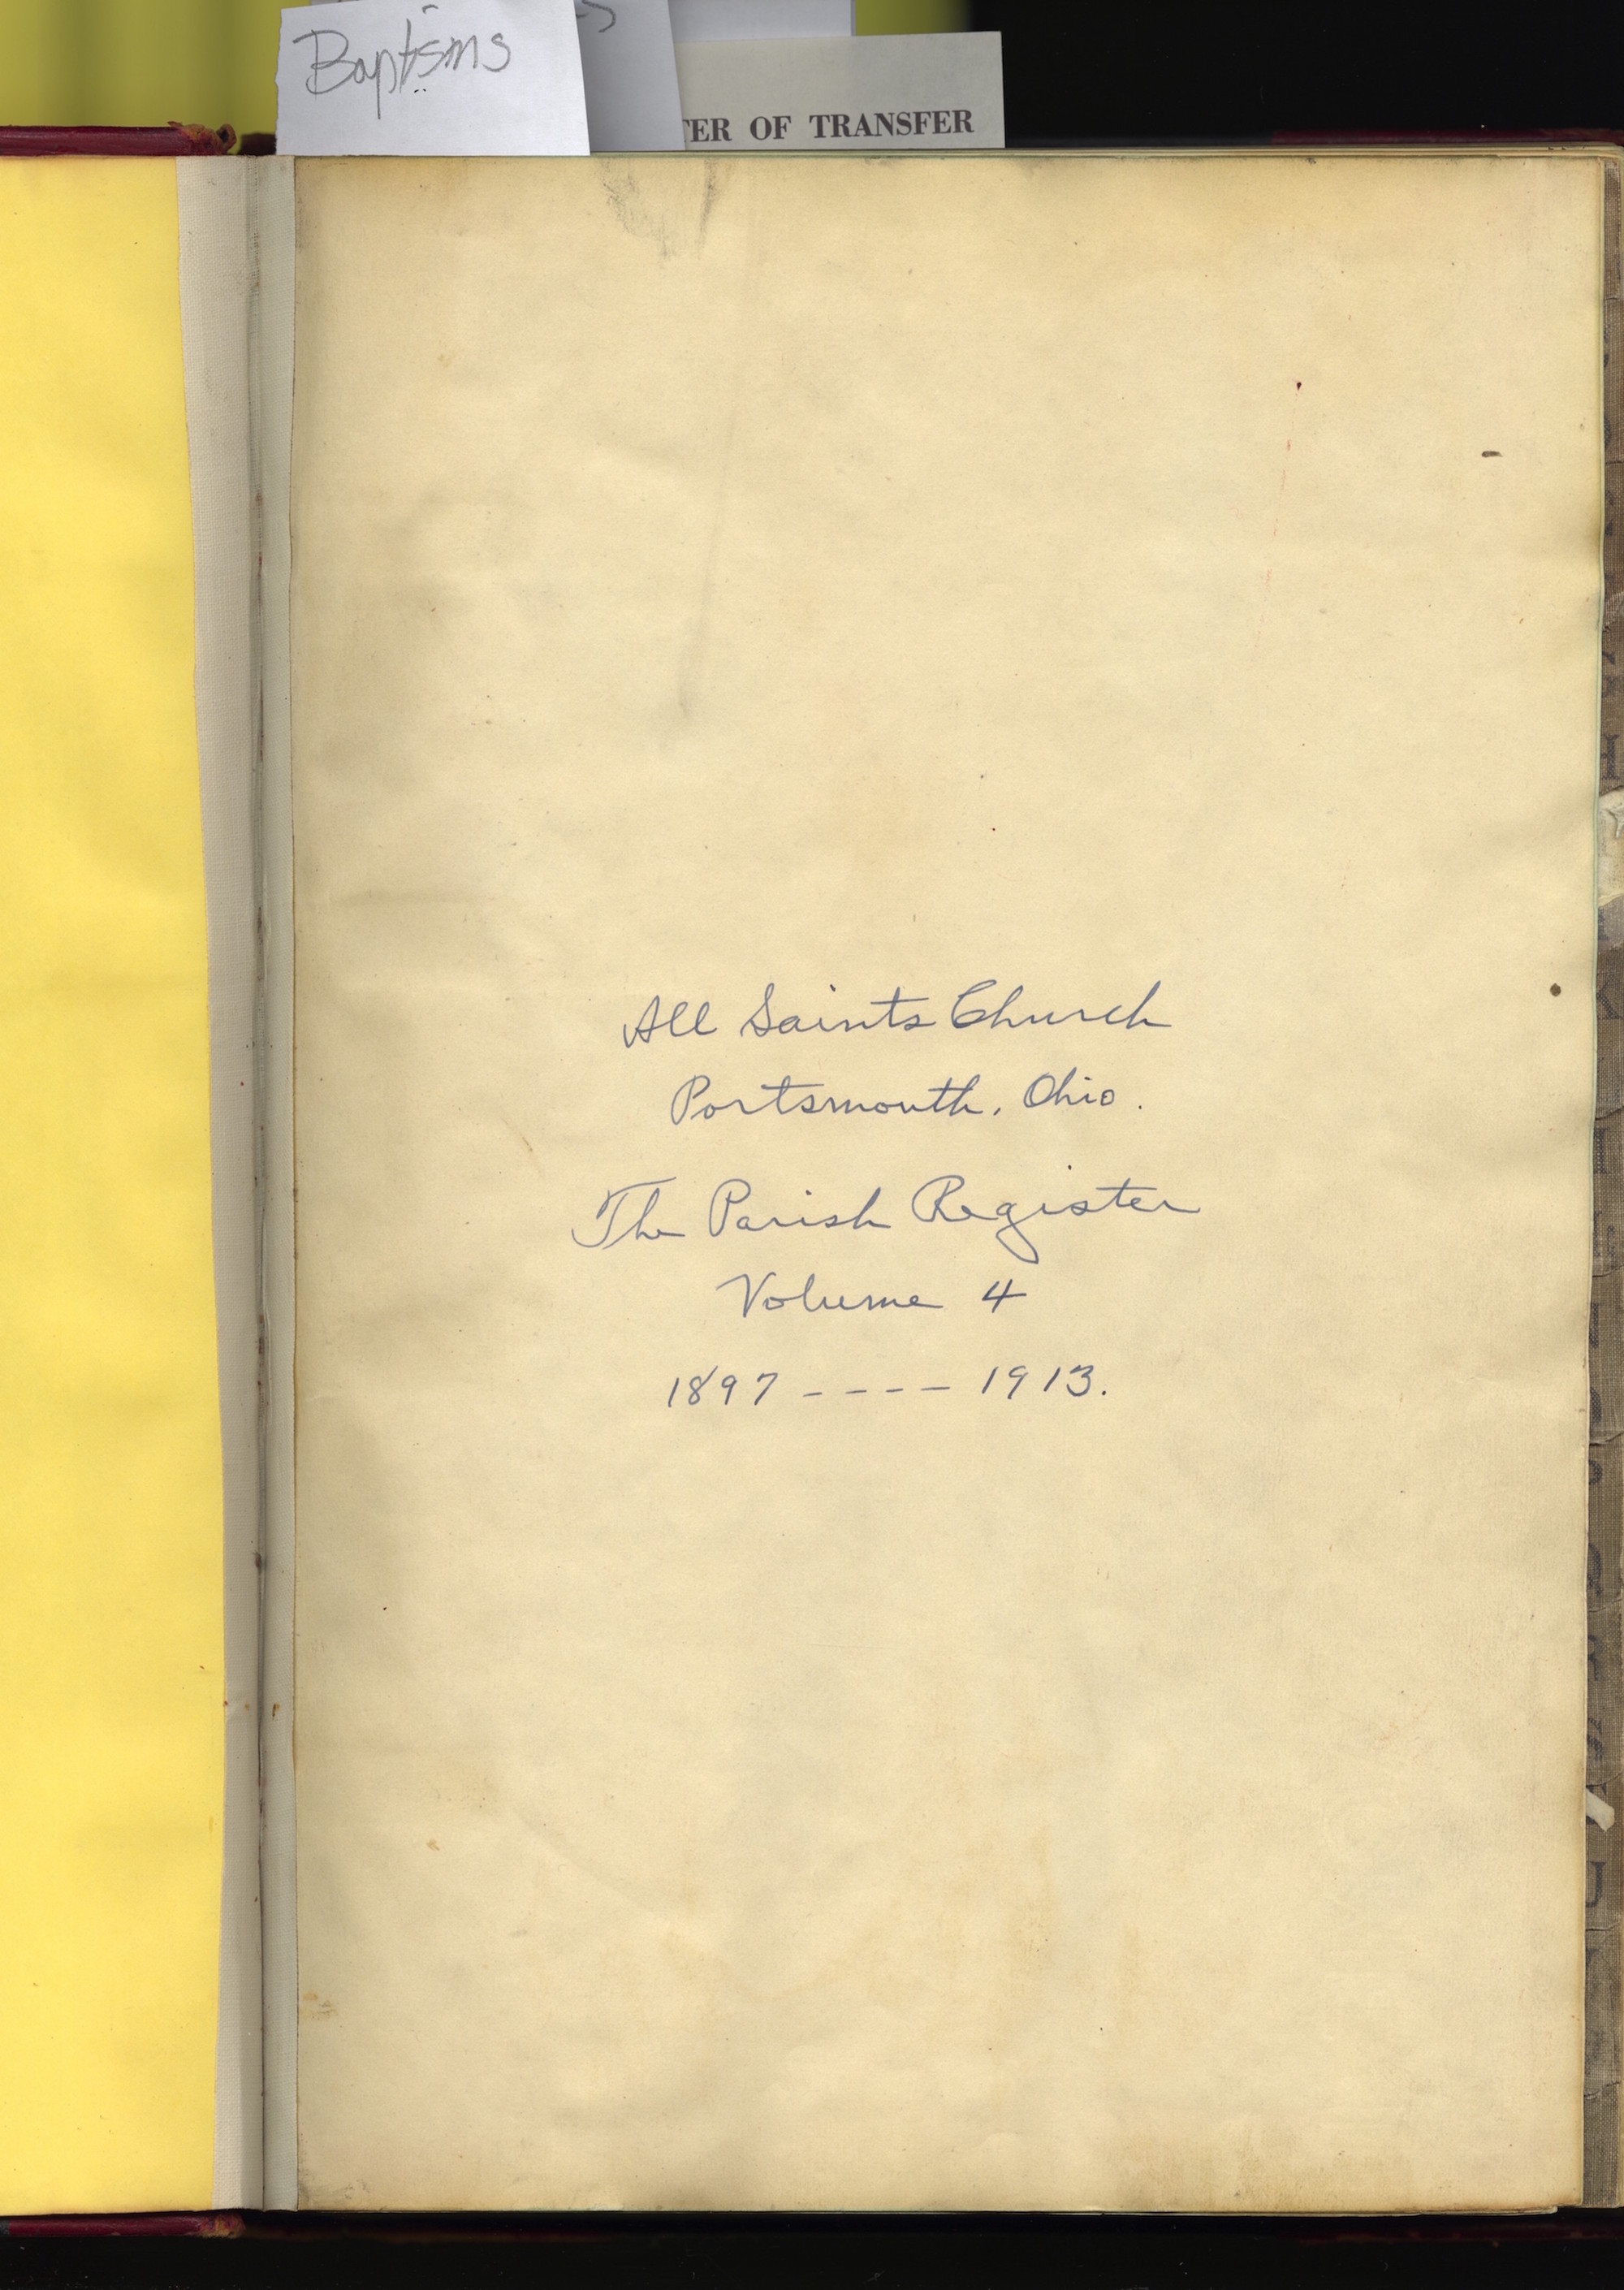 Baptisms
TER OF TRANSFER
All Saints Church
Portsmouth, Ohio.
The Parish Register
Volume 4
1897 ---- 1913.